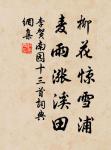 柳花惊雪浦
麦雨涨溪田
李贺南园十三首词典
网集